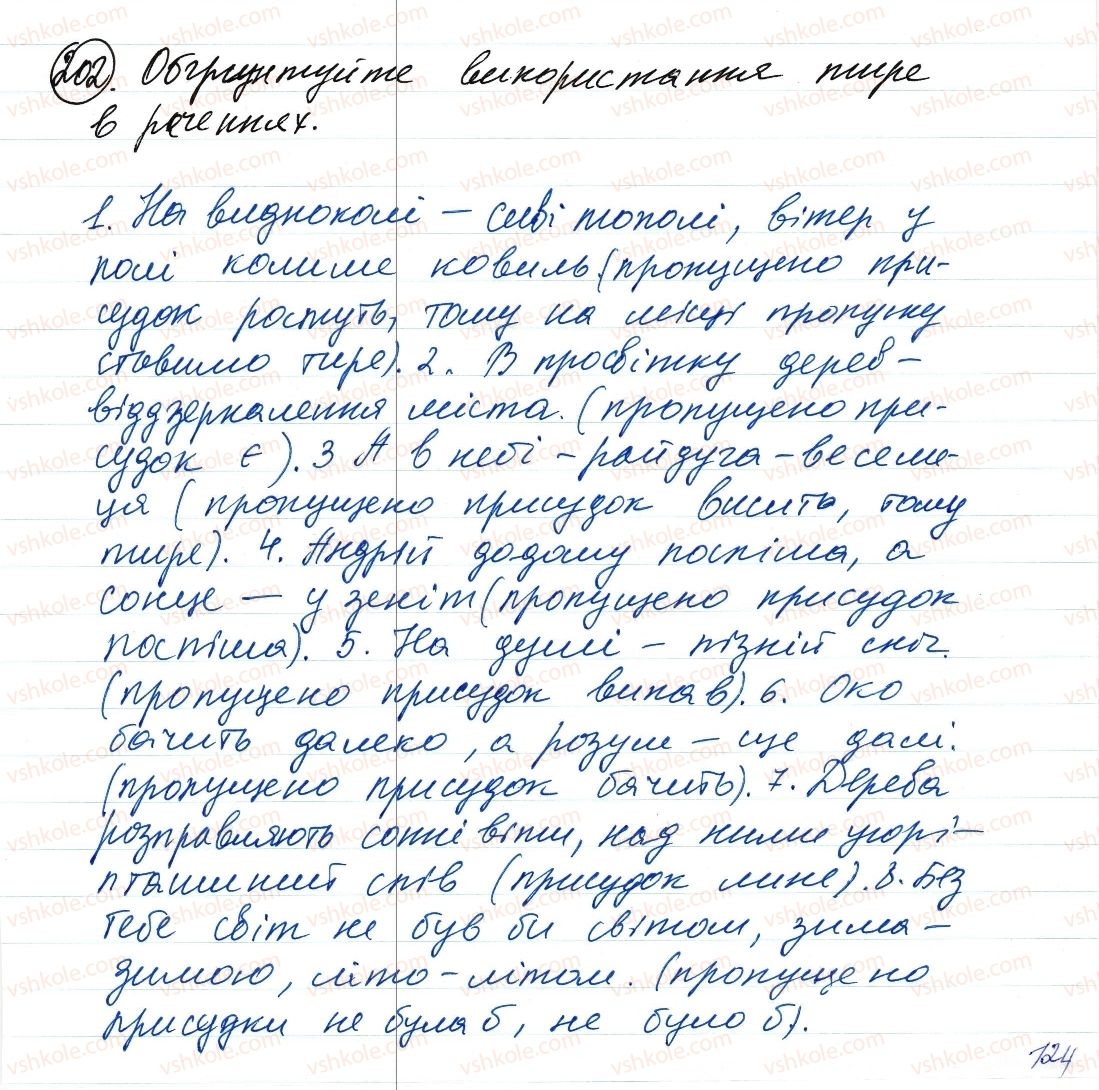 202. Обґрунтуйте використання тире
в реченнях.
1. На видноколі – сиві тополі, вітер у
полі колише ковиль (пропущено при-
судок ростуть, тому на місці пропуску
ставимо тире). 2. В просвітку дерев –
віддзеркалення міста. (пропущено при-
судок є). 3 А в небі – райдуга – весели-
ця (пропущено присудок висить, тому
тире). 4. Андрій додому поспіша, а
сонце — у зеніт (пропущено присудок
поспіша). 5. На душі – пізній сніг.
(пропущено присудок випав). 6. Око
бачить далеко, а розум – ще далі.
(пропущено присудок бачить). 7. Дерева
розправляють сонні віти, над ними угорі –
пташиний спів (присудок лине). 8. Без
тебе світ не був би світом, зима –
зимою, літо – літом. (пропущено
присудки не була б, не було б).
124